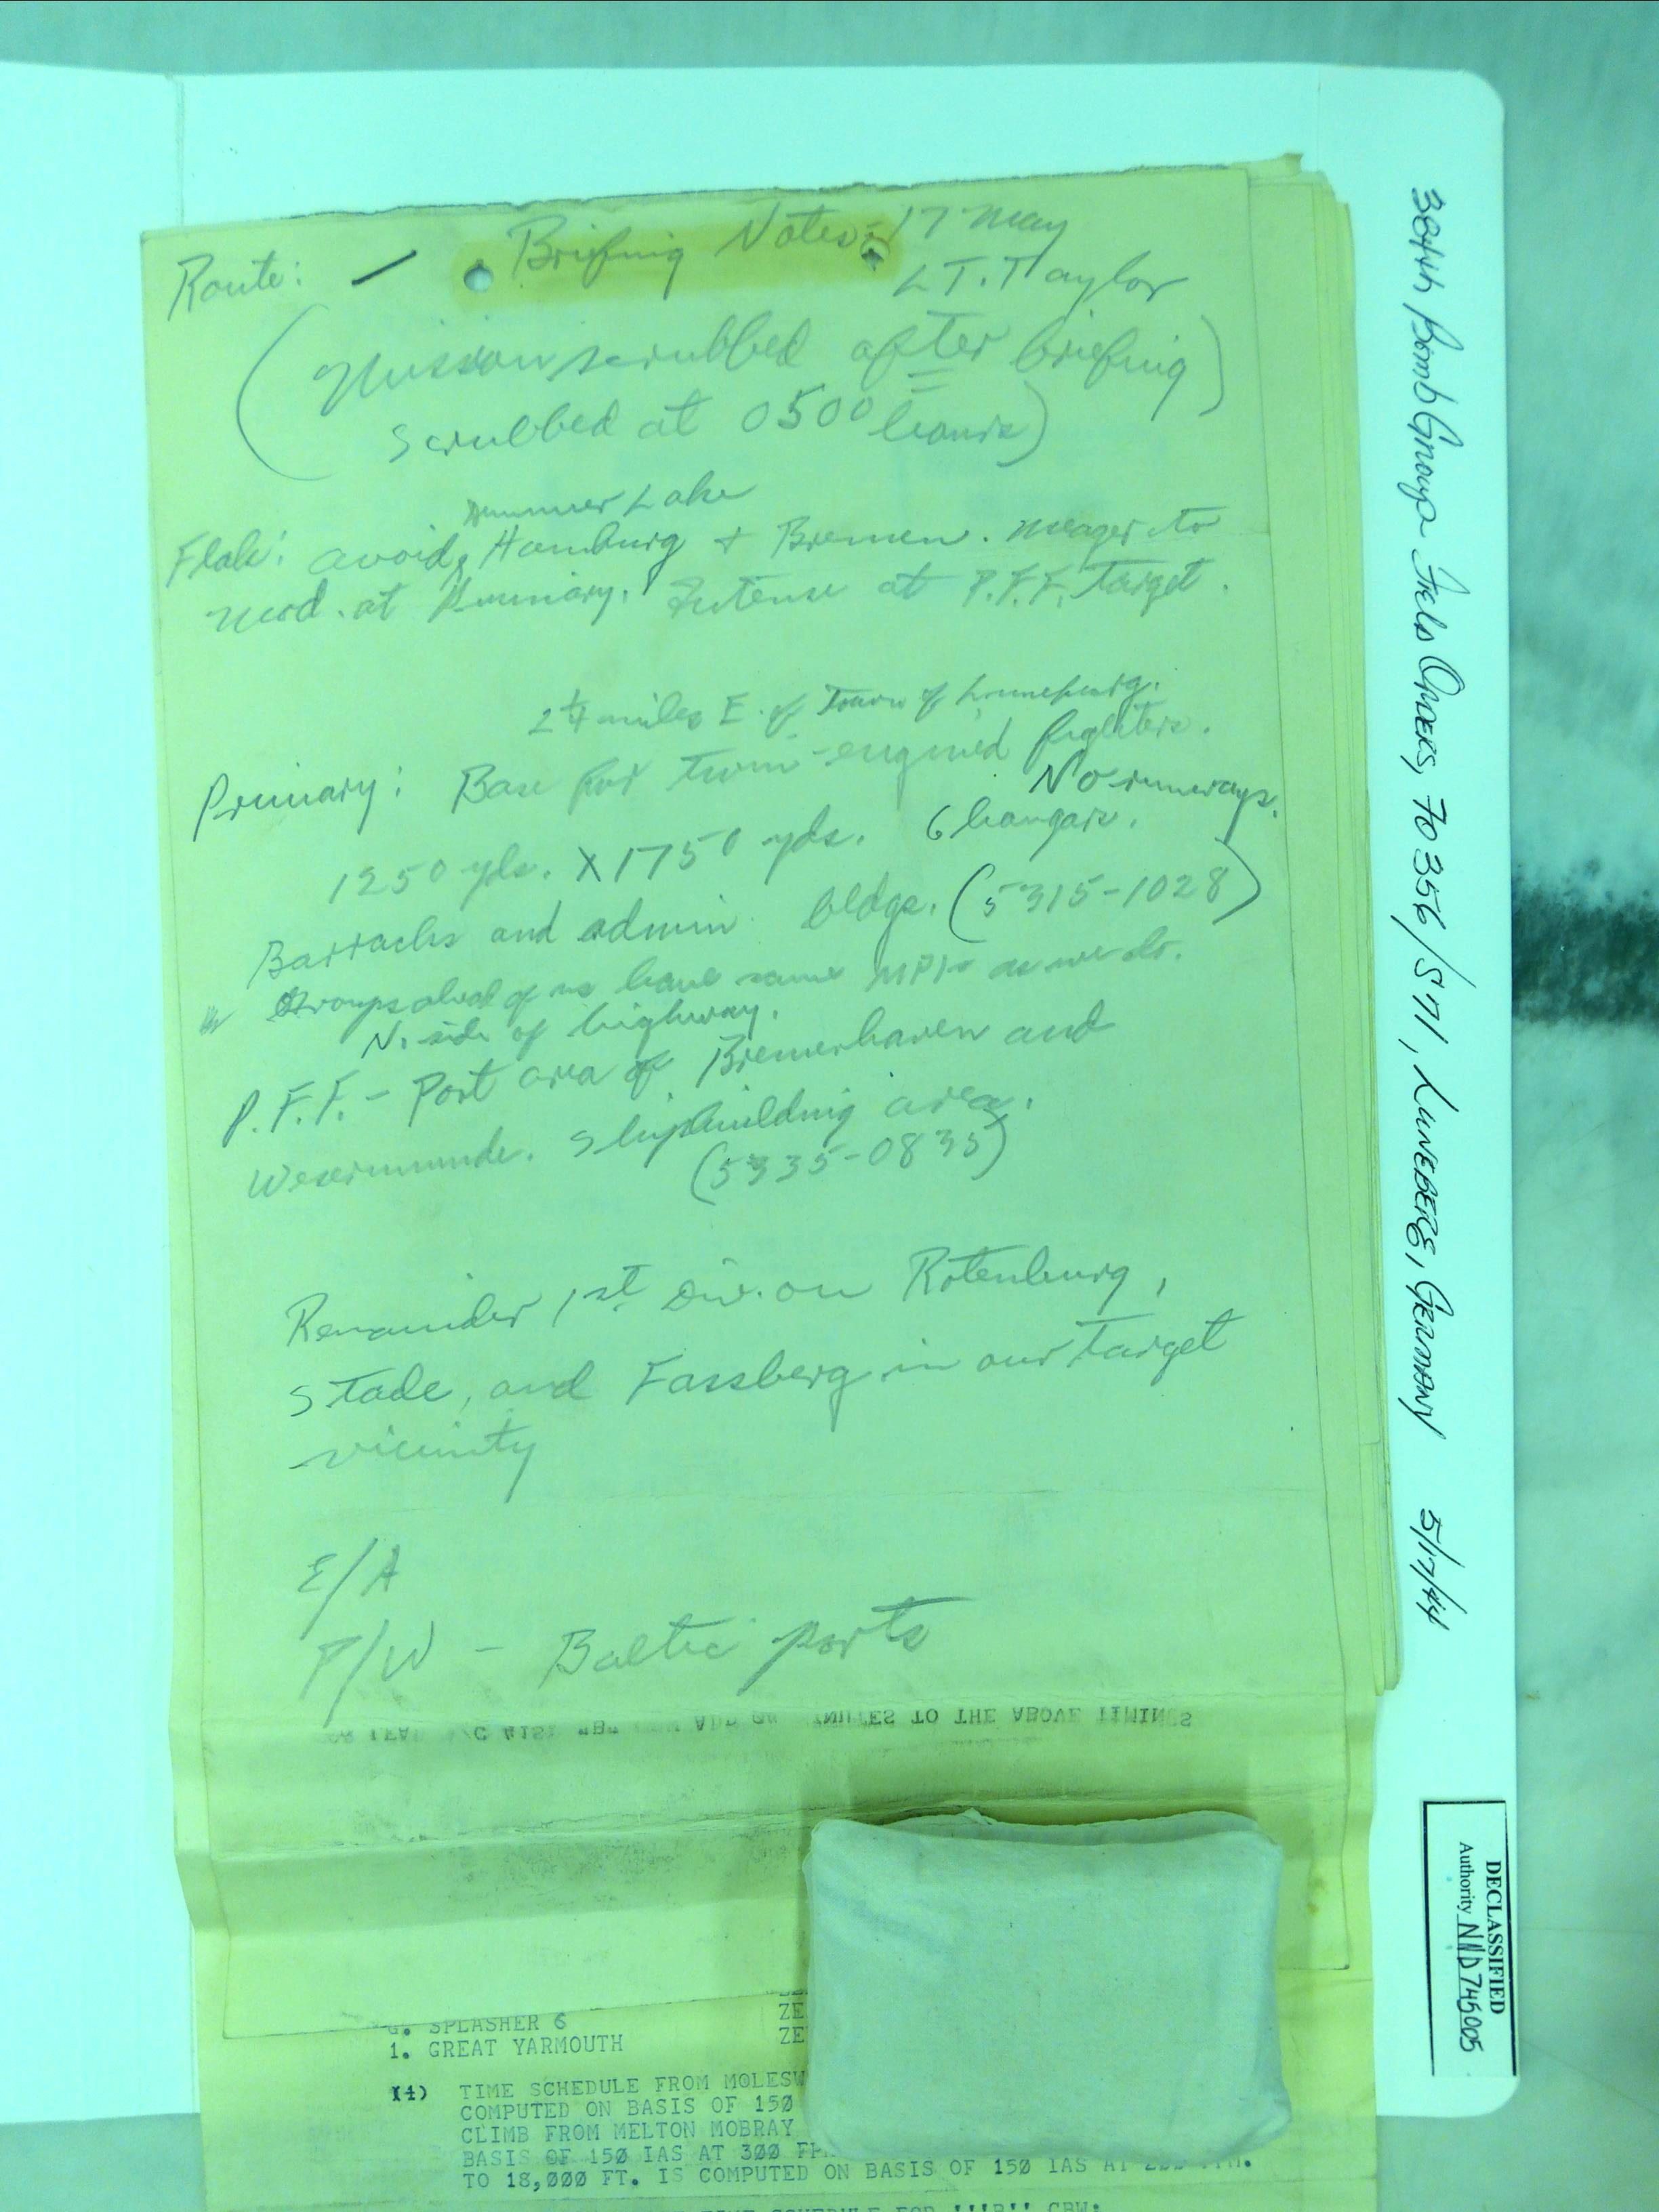 Briefing Notes - 17 May
Route: —
LT. Taylor
(Mission scrubbed after briefing)
Scrubbed at 0500 hours)
Dummer Lake
Flak: avoid, Hamburg + Bremen. Meager to
mod. at Primary. Intense at P.F.F. Target.
2 1/4 miles E. of Town of Luneburg.
Primary: Base for twin-engined fighters.
No runways.
1250 yds. X 1750 yds. 6 hangars.
Barracks and admin bldgs. (5315-1028)
Groups ahead of us have same MPI- as we do.
N. side of highway.
P.F.F. - Port area of Bremerhaven and
Wesermunde. Shipbuilding area.
(5335-0835)
Remainder 1st Div. on Rotenburg,
Stade, and Fassberg in our target
vicinity
E/A
P/W - Baltic ports
TO THE ABOVE TIMINGS
G. SPLASHER 6 ZE
1. GREAT YARMOUTH ZE
(4) TIME SCHEDULE FROM MOLESW
COMPUTED ON BASIS OF 150
CLIMB FROM MELTON MOBRAY
BASIS OF 150 IAS AT 300 FP
TO 18,000 FT. IS COMPUTED ON BASIS OF 150 IAS AT
384th Bomb Group Field Orders, FO 356/S71, LUNEBERG, GERMANY 5/17/44
DECLASSIFIED
Authority NND745005